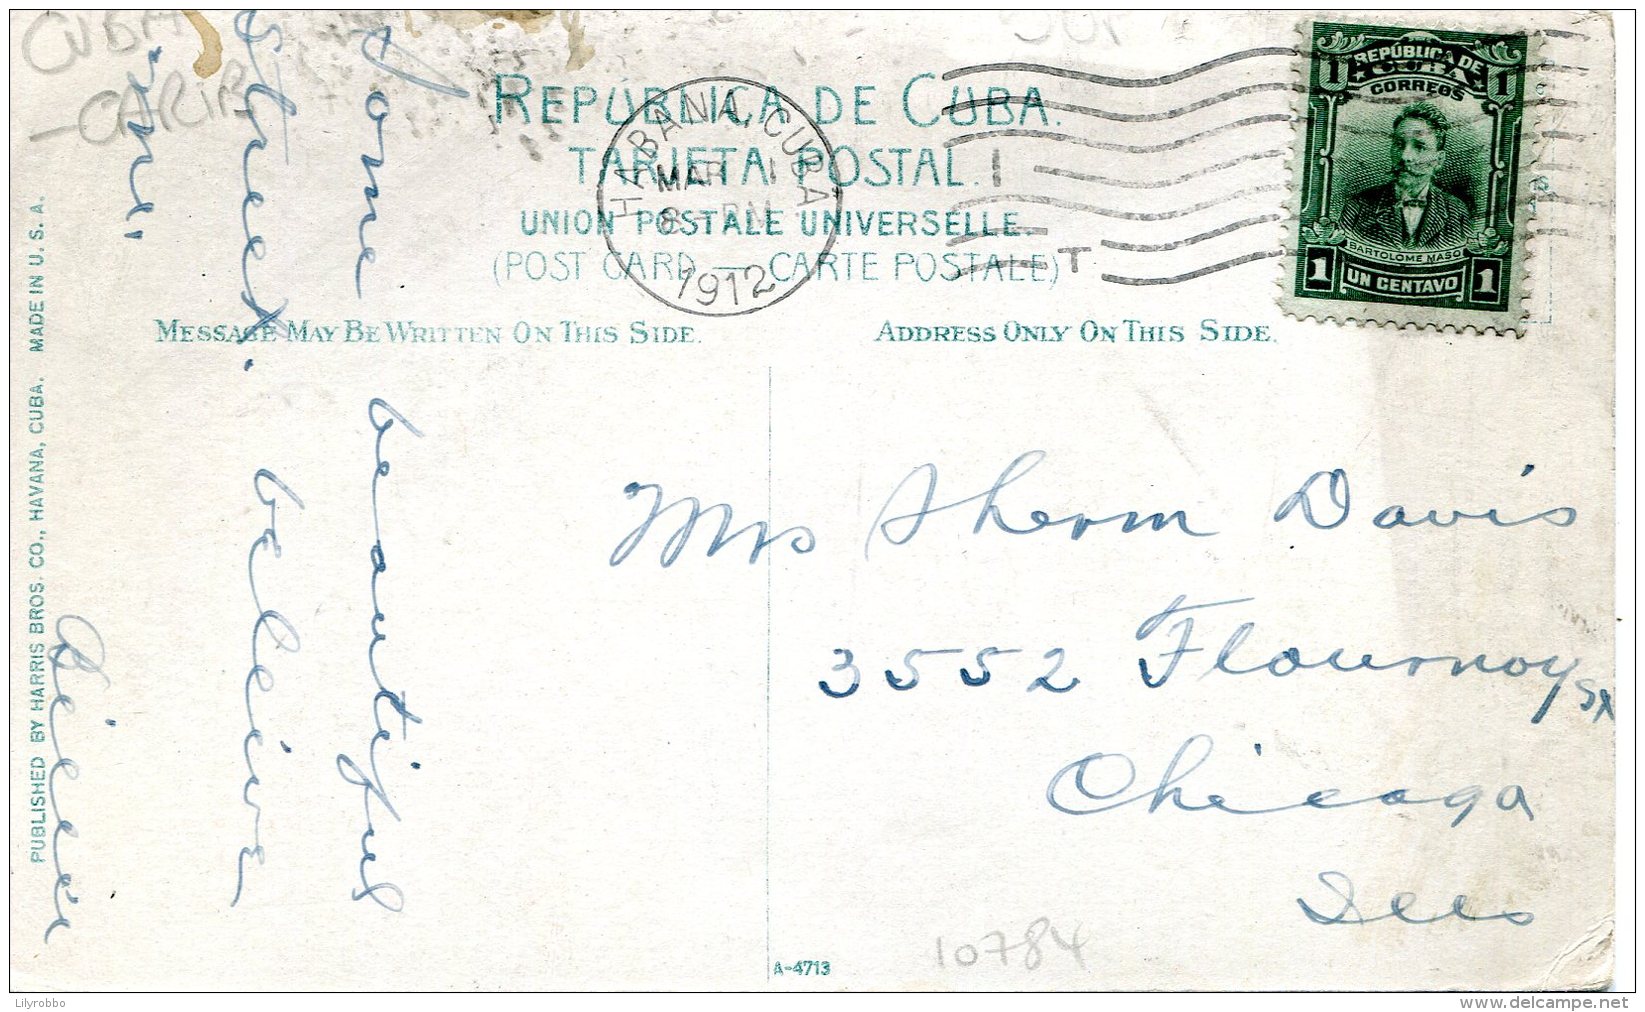 CUBA
-CARIB
REPÚBLICA DE CUBA.
TARJETA POSTAL.
UNION POSTALE UNIVERSELLE.
(POST CARD — CARTE POSTALE)
MESSAGE MAY BE WRITTEN ON THIS SIDE.
ADDRESS ONLY ON THIS SIDE.
HABANA, CUBA
MAR 1
8 - PM
1912
REPÚBLICA DE
CUBA
CORREOS
1 1
BARTOLOME MASO
1 UN CENTAVO 1
Some beautiful
Street. believe
me,
PUBLISHED BY HARRIS BROS. CO., HAVANA, CUBA. MADE IN U. S. A.
Mrs Sherm Davis
3552 Flournoy St
Chicago
Ills
10784
A-4713
Lilyrobbo
delcampe.net